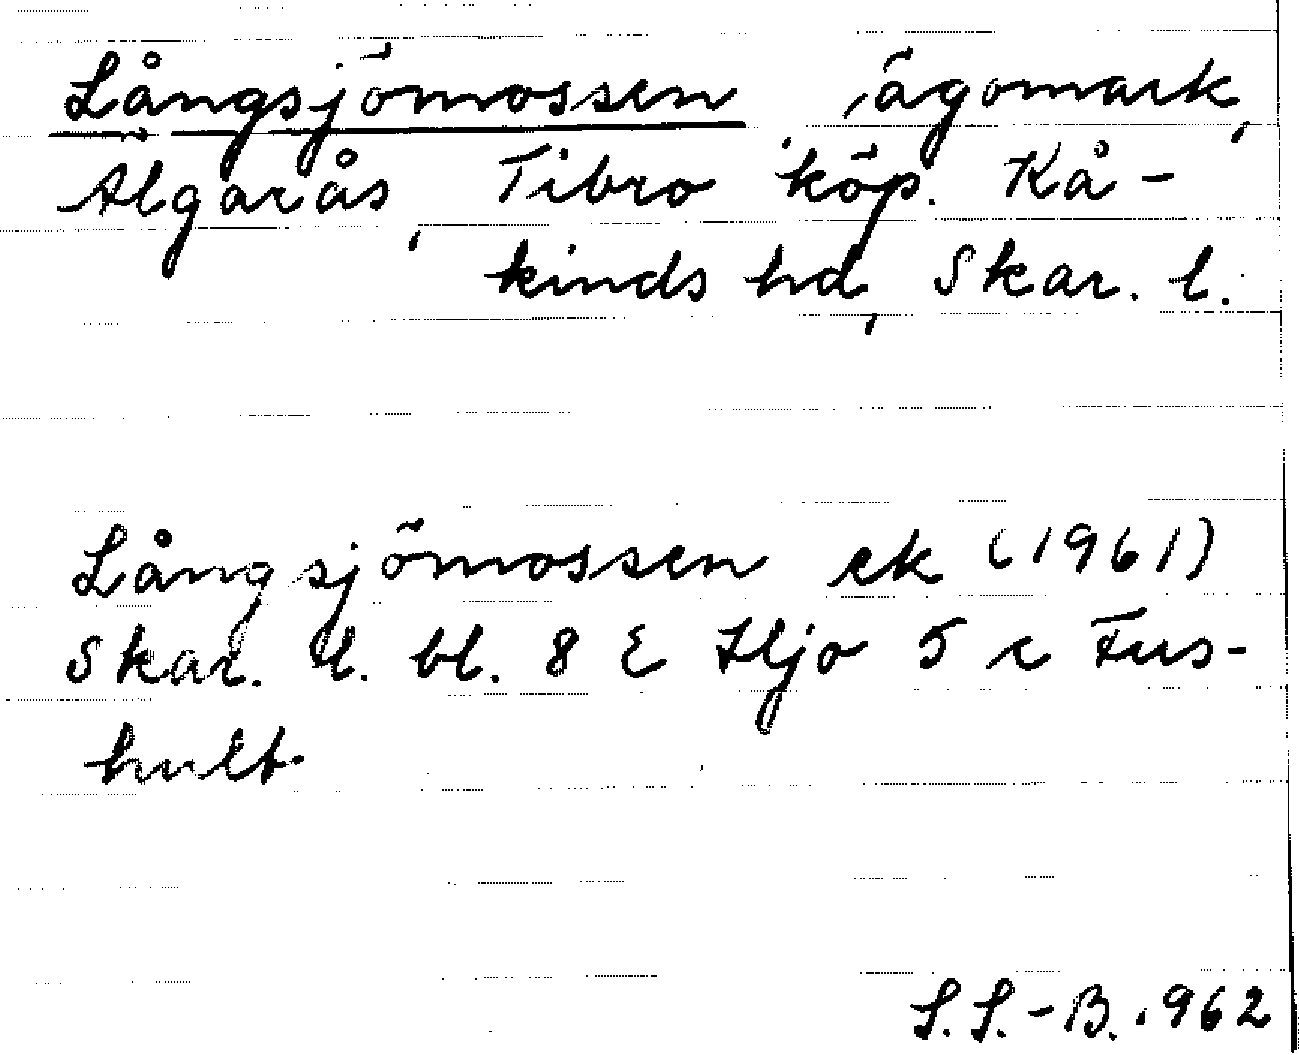 Långsjömossen, ägomark,
Algarås, Tibro köp. Kå-
kinds hd, Skar. l.
Långsjömossen ek (1961)
Skar. l. bl. 8 E Hjo 5 c Fus-
hult.
S.S.-B. 1962